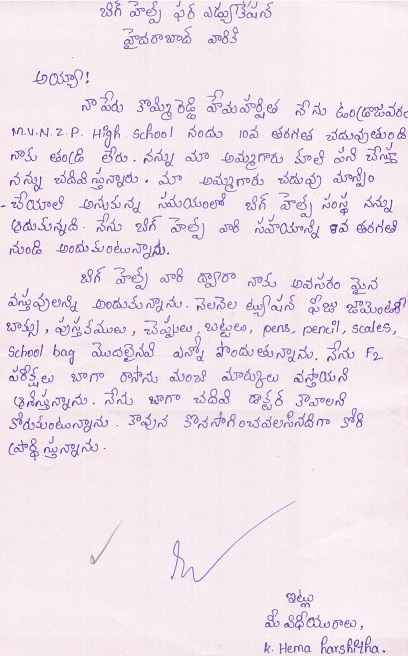 బిగ్ హెల్ప్ ఫర్ ఎడ్యుకేషన్
హైదరాబాద్ వారికి
అయ్యా!
నా పేరు కొమ్మిరెడ్డి హేమహర్షిత నేను ఉండ్రాజవరం
M.V.N.Z.P. High School నందు 10వ తరగతి చదువుతుంది
నాకు తండ్రి లేరు. నన్ను మా అమ్మగారు కూలి పని చేస్తూ
నన్ను చదివిస్తున్నారు. మా అమ్మగారు చదువు మాన్పిం
-చేయాలి అనుకున్న సమయంలో బిగ్ హెల్ప్ సంస్థ నన్ను
ఆదుకున్నది. నేను బిగ్ హెల్ప్ వారి సహయాన్ని 8వ తరగతి
నుండి అందుకుంటున్నాను.
బిగ్ హెల్ప్ వారి ద్వారా నాకు అవసరం మైన
వస్తువులన్ని అందుకున్నాను. నెలనెల ట్యూషన్ ఫీజు జామెంటరీ
బాక్సు, పుస్తకములు, చెప్పులు, బట్టలు, pens, pencil, scales,
School bag మొదలైనవి ఎన్నో పొందుతున్నాను. నేను F2
పరీక్షలు బాగా రాసాను మంచి మార్కులు వస్తాయని
ఆశిస్తున్నాను. నేను బాగా చదివి డాక్టర్ కావాలని
కోరుకుంటున్నాను. కావున కొనసాగించవలసినదిగా కోరి
ప్రార్థిస్తున్నాను.
ఇట్లు
మీ విధేయురాలు,
K. Hema harshitha.